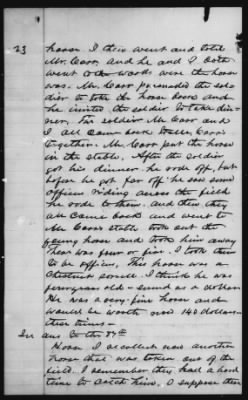 23
horse I then went and told
Mr. Carr, and he and I both
went to the woods were the horse
was. Mr. Carr persuaded the sol-
dier to take the horse home and
he invited the soldier to take din-
ner. The soldier Mr Carr and
I all came back to Mr. Carrs
together. Mr. Carr put the horse
in the stable. After the soldier
got his dinner he rode off, but
before he got far off he saw some
officers riding across the field
he rode to them. And then they
all came back and went to
Mr Carrs stable took out the
young horse and took him away
There was four or five. I took them
to be officers. This horse was a
Chestnut sorrell. I think he was
four years old - sound as a dollar
He was a very fine horse and
would be worth now 140 dollars -
these times -
In ans to the 34th
Horse. I recollect now another
horse that was taken out of the
field. I remember they had a hard
time to catch him. I suppose there